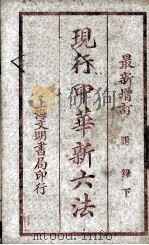 最新增訂 附錄下
現行中華新六法
上海文明書局印行